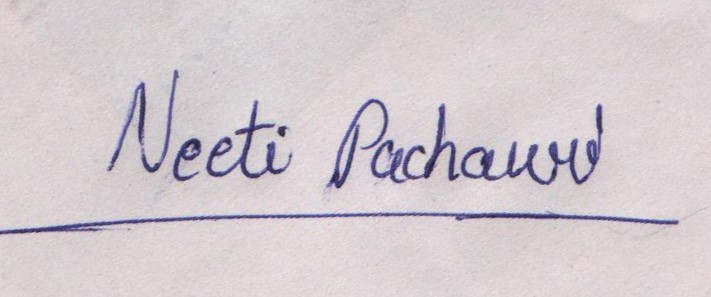 Neeti Pachauri